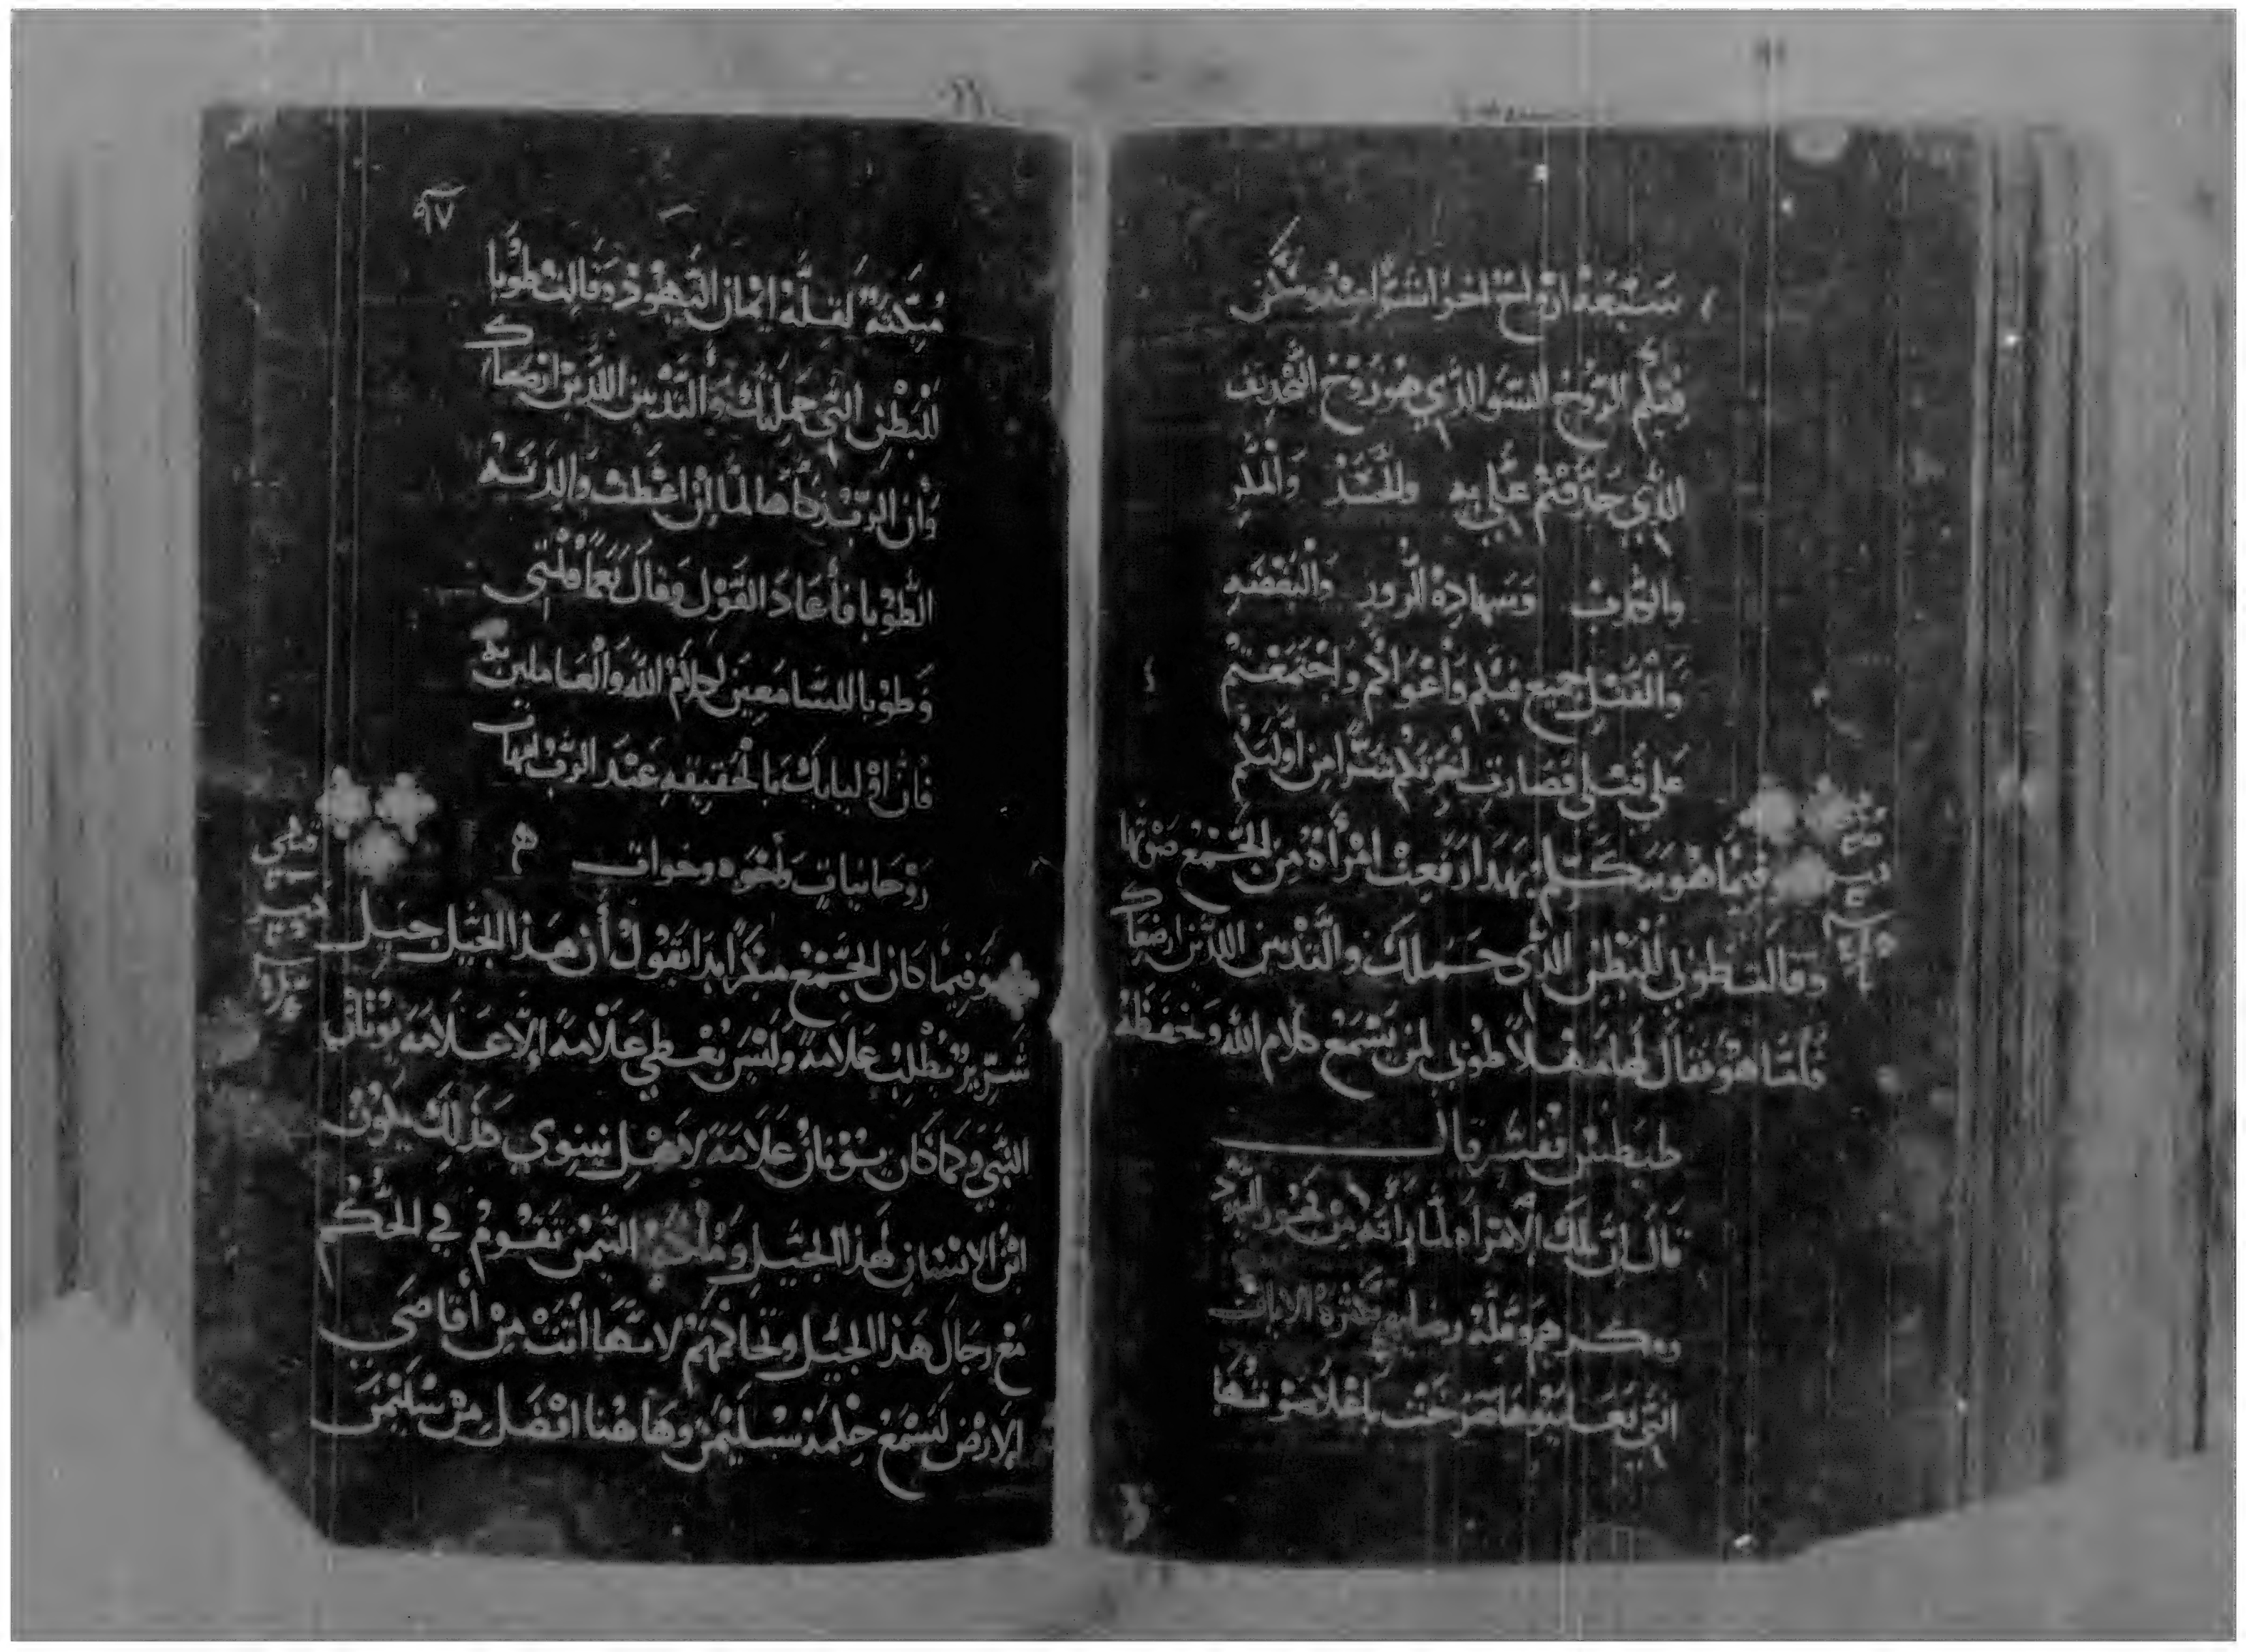 سبعة ارواح اخر اشر منه وسكن
فيكم الروح السو الذي هو روح التجديف
الذي جدفتم علي به والحسد والمكر
والكذب وشهادة الزور والبغضه
والقتل جميع فيكم واغواكم واجتمعتم
على قتلي فصارت اخرتكم شرا من اولتكم
فيما هو يتكلم بهذا رفعت امرأة من الجمع صوتها
وقالت طوبى للبطن الذي حملك والثديين اللذين ارضعاك
فأما هو فقال لها مهلا طوبى لمن يسمع كلام الله ويحفظه
طيطس يفسر قال
قال ان تلك الامراه لما رأت من
وقلة كثرة الايات
التي يعملها صرخت باعلا صوتها
٩٧
مبكتة لقلة ايمان اليهود وقالت طوبا
للبطن التي حملتك والثديين اللذين ارضعاك
وان الرب زكاها لما ان اعطت والدته
الطوبا فأعاد القول وقال نعما قلتي
وطوبا للسامعين لكلام الله والعاملين به
فان اوليايك بالحقيقه عند الرب امهات
روحانيات واخوه وخوات
وفيما كان الجمع ابدا يقول أن هذا الجيل جيل
شرير يطلب علامة وليس يعطي علامة إلا علامة يونان
النبي وكما كان يونان علامة لاهل نينوي كذلك يكون
ابن الانسان لهذا الجيل وملكة التيمن تقوم في الحكم
مع رجال هذا الجيل وتحاكمهم لانها أتت من أقاصى
الارض لتسمع حكمة سليمن وهاهنا افضل من سليمن